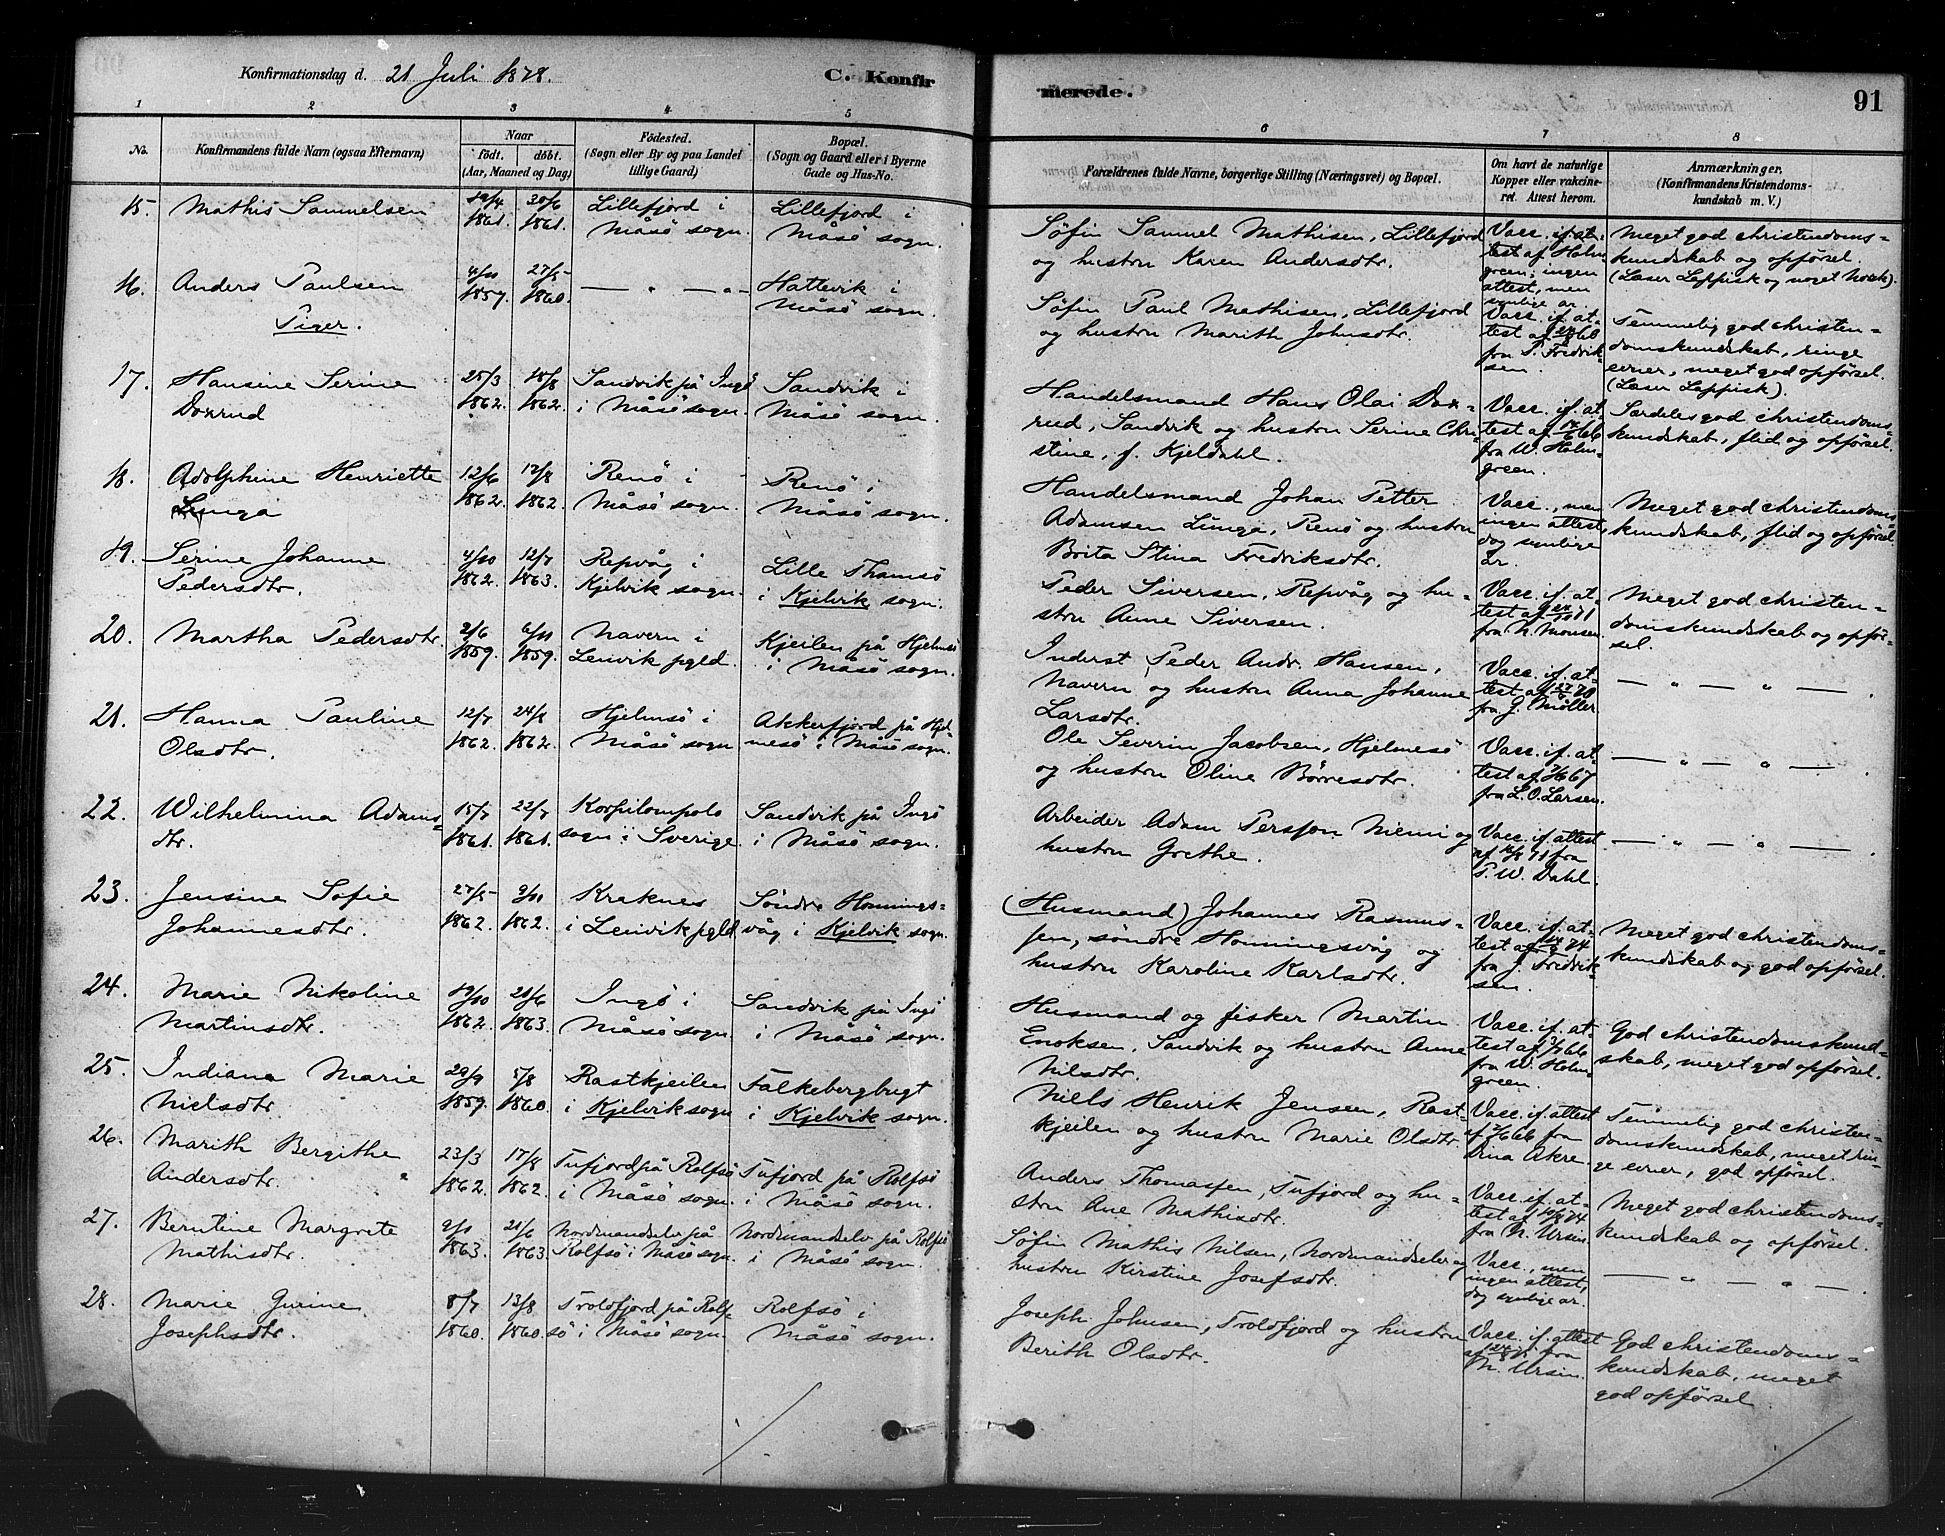 Konfirmationsdag d. 21 Juli 1878.
C. Konfir
merede.
91
1 2 3 4 5 6 7 8
No.
Konfirmandens fulde Navn (ogsaa Efternavn)
Naar
født. døbt.
(Aar, Maaned og Dag)
Fødested.
(Sogn eller By og paa Landet
tillige Gaard)
Bopæl.
(Sogn og Gaard eller i Byerne
Gade og Hus-No.
Forældrenes fulde Navne, borgerlige Stilling (Næringsvei) og Bopæl.
Om havt de naturlige
Kopper eller vakcine-
ret. Attest herom.
Anmærkninger.
(Konfirmandens Kristendoms-
kundskab m. V.)
15. Mathis Samuelsen
19/4 1861. 20/6 1861.
Lillefjord i
Måsø sogn.
Lillefjord i
Måsø sogn.
Søfin Samuel Mathisen, Lillefjord
og hustru Karen Andersdtr.
Vacc. if. at-
test af Holm-
green; ingen
attest, men
synlige ar.
Meget god christendoms-
kundskab og opførsel.
(Læser Lappisk og noget Norsk).
16. Anders Paulsen
4/10 1859. 27/5 1860.
— " — " —
Hattevik i
Måsø sogn.
Søfin Paul Mathisen, Lillefjord
og hustru Marith Johnsdtr.
Vacc. if. at-
test af 60
fra P. Fredrik-
sen.
Temmelig god christen-
domskundskab, ringe
evner, meget god opførsel.
(Læser Lappisk).
Piger.
17. Hansine Serine
Doxrud
25/3 1862. 15/8 1862.
Sandvik på Ingø
i Måsø sogn.
Sandvik i
Måsø sogn.
Handelsmand Hans Olai Dox-
rud, Sandvik og hustru Serine Chri-
stine, f. Kjeldahl.
Vacc. if. at-
test af 66
fra W. Holm-
green.
Særdeles god christendoms-
kundskab, flid og opførsel.
18. Adolphine Henriette
Linga
12/6 1862. 17/8 1862.
Renø i
Måsø sogn.
Renø i
Måsø sogn.
Handelsmand Johan Petter
Adamsen Linga, Renø og hustru
Brita Stina Fredriksdtr.
Vacc., men
ingen attest,
dog synlige
ar.
Meget god christendoms-
kundskab, flid og opførsel.
19. Serine Johanne
Pedersdtr.
4/10 1862. 12/7 1863.
Repvåg i
Kjelvik sogn.
Lille Thamsø
i Kjelvik sogn.
Peder Siversen, Repvåg og hu-
stru Anne Siversen.
Vacc. if. at-
test af 71
fra N. Monsen.
Meget god christen-
domskundskab og opfør-
sel.
20. Martha Pedersdtr.
2/6 1859. 6/11 1859.
Navern i
Lenvik pgld.
Kjeilen på Hjelmsø
i Måsø sogn.
Inderst Peder Andr. Hansen,
Navern og hustru Anna Johanne
Larsdtr.
Vacc. if. at-
test af 70
fra J. Møller.
— " — " — .
21. Hanna Pauline
Olsdtr.
12/7 1862. 24/8 1862.
Hjelmsø i
Måsø sogn
Akkerfjord på Hjel-
mesø i Måsø sogn.
Ole Severin Jacobsen, Hjelmesø
og hustru Oline Børresdtr.
Vacc. if. at-
test af 67
fra L. O. Larsen.
— " — " — .
22. Wilhelmina Adams-
dtr.
15/7 1861. 22/7 1861.
Korpilompolo
sogn i Sverige.
Sandvik på Ingø
i Måsø sogn.
Arbeider Adam Persson Niemi og
hustru Grethe.
Vacc. if. attest
af 71 fra
P. W. Dahl.
— " — " — .
23. Jensine Sofie
Johannesdtr.
27/5 1862. 9/11 1862.
Kraknes
i Lenvik pgld
Søndre Honnings-
våg i Kjelvik sogn.
(Husmand) Johannes Rasmus-
sen, søndre Honningsvåg og
hustru Karoline Karlsdtr.
Vacc. if. at-
test af 74
fra J. Fredrik-
sen.
Meget god christendoms-
kundskab og god opførsel.
24. Marie Nikoline
Martinsdtr.
19/10 1862. 21/6 1863.
Ingø i
Måsø sogn.
Sandvik på Ingø
i Måsø sogn.
Husmand og fisker Martin
Enoksen, Sandvik og hustru Anne
Nilsdtr.
Vacc. if. at-
test af 66
fra W. Holm-
green.
God christendomskund-
skab, meget god opførsel.
25. Indiana Marie
Nielsdtr.
29/9 1859. 5/8 1860.
Rastkjeilen
i Kjelvik sogn
Falkebergbugt
i Kjelvik sogn.
Niels Henrik Jensen, Rast-
kjeilen og hustru Marie Olsdtr.
Vacc. if. attest
af 66 fra
Dina Akre.
Temmelig god christen-
domskundskab, meget rin-
ge evner, god opførsel.
26. Marith Bergithe
Andersdtr.
23/3 1862. 17/8 1862.
Tufjord på Rolfsø
i Måsø sogn.
Tufjord på Rolfsø
i Måsø sogn.
Anders Thomassen, Tufjord og hu-
stru Ane Mathisdtr.
Vacc. if. at-
test af 74
fra N. Ursin.
Meget god christendoms-
kundskab og opførsel.
27. Berntine Margrete
Mathisdtr.
9/1 1863. 21/6 1863
Nordmandselv på
Rolfsø i Måsø sogn.
Nordmandselv på Rolfsø
i Måsø sogn.
Søfin Mathis Nilsen, Nordmandselv og
hustru Kirstine Josefsdtr.
Vacc., men
ingen attest,
dog synlige ar.
— " — " — .
28. Marie Gurine
Josephsdtr.
8/7 1860. 13/8 1860.
Troldfjord på Rolf-
sø i Måsø sogn.
Rolfsø i
Måsø sogn.
Joseph Johnsen, Troldfjord og hustru
Berith Olsdtr.
Vacc. if. attest
af fra
N. Ursin.
God christendoms-
kundskab, meget
god opførsel.